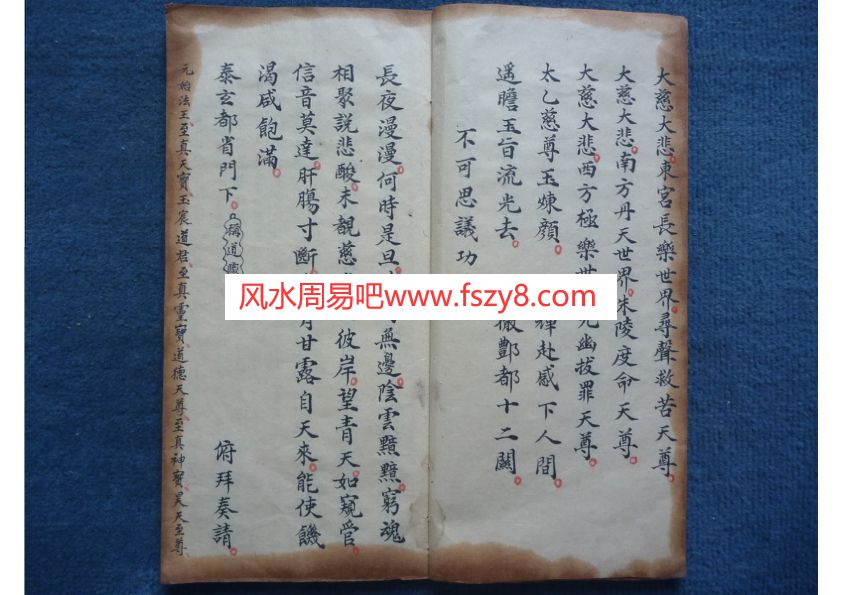 大慈大悲東宮長樂世界尋聲救苦天尊
大慈大悲南方丹天世界朱陵度命天尊
大慈大悲西方極樂世 幽拔罪天尊
太乙慈尊玉煉顏 輝赴感下人間
遥瞻玉旨流光去 徹酆都十二關
不可思議功
長夜漫漫何時是旦 無邊陰雲黯黯窮魂
相聚説悲酸未覩慈 彼岸望青天如窺管
信音莫達肝腸寸斷 有甘露自天來能使饑
渴咸飽滿
泰玄都省門下 稱道 俯拜奏請
元始法王至真天寶玉宸道君至真靈寶道德天尊至真神寶昊天至尊
风水周易吧www.fszy8.com